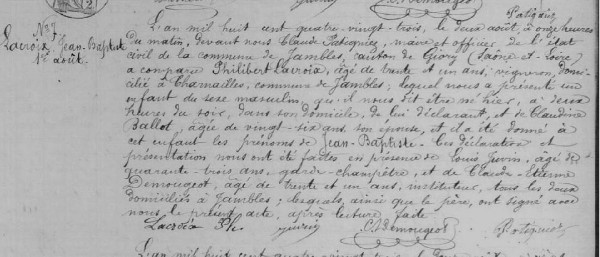 N° 7
Lacroix Jean-Baptiste
1er août.
L'an mil huit cent quatre-vingt-trois, le deux août, à onze heures
du matin, devant nous Claude Patiguiez, maire et officier de l'état
civil de la commune de Jambles, canton de Givry (Saône-et-Loire)
a comparu Philibert Lacroix, âgé de trente et un ans, vigneron, domi-
cilié à Charnailles, commune de Jambles; lequel nous a présenté un
enfant du sexe masculin qu'il nous dit être né hier, à deux
heures du soir, dans son domicile, de lui déclarant, et de Claudine
Ballot, âgée de vingt-six ans, son épouse, et il a été donné à
cet enfant les prénoms de Jean-Baptiste. Ces déclaration et
présentation nous ont été faites en présence de Louis, âgé de
quarante-trois ans, garde-champêtre, et de Claude Étienne
Demougeot, âgé de trente et un ans, instituteur, tous les deux
domiciliés à Jambles; lesquels, ainsi que le père, ont signé avec
nous le présent acte, après lecture faite.
Lacroix Ph. C. E. Demougeot
L'an mil huit cent quatre-vingt-trois